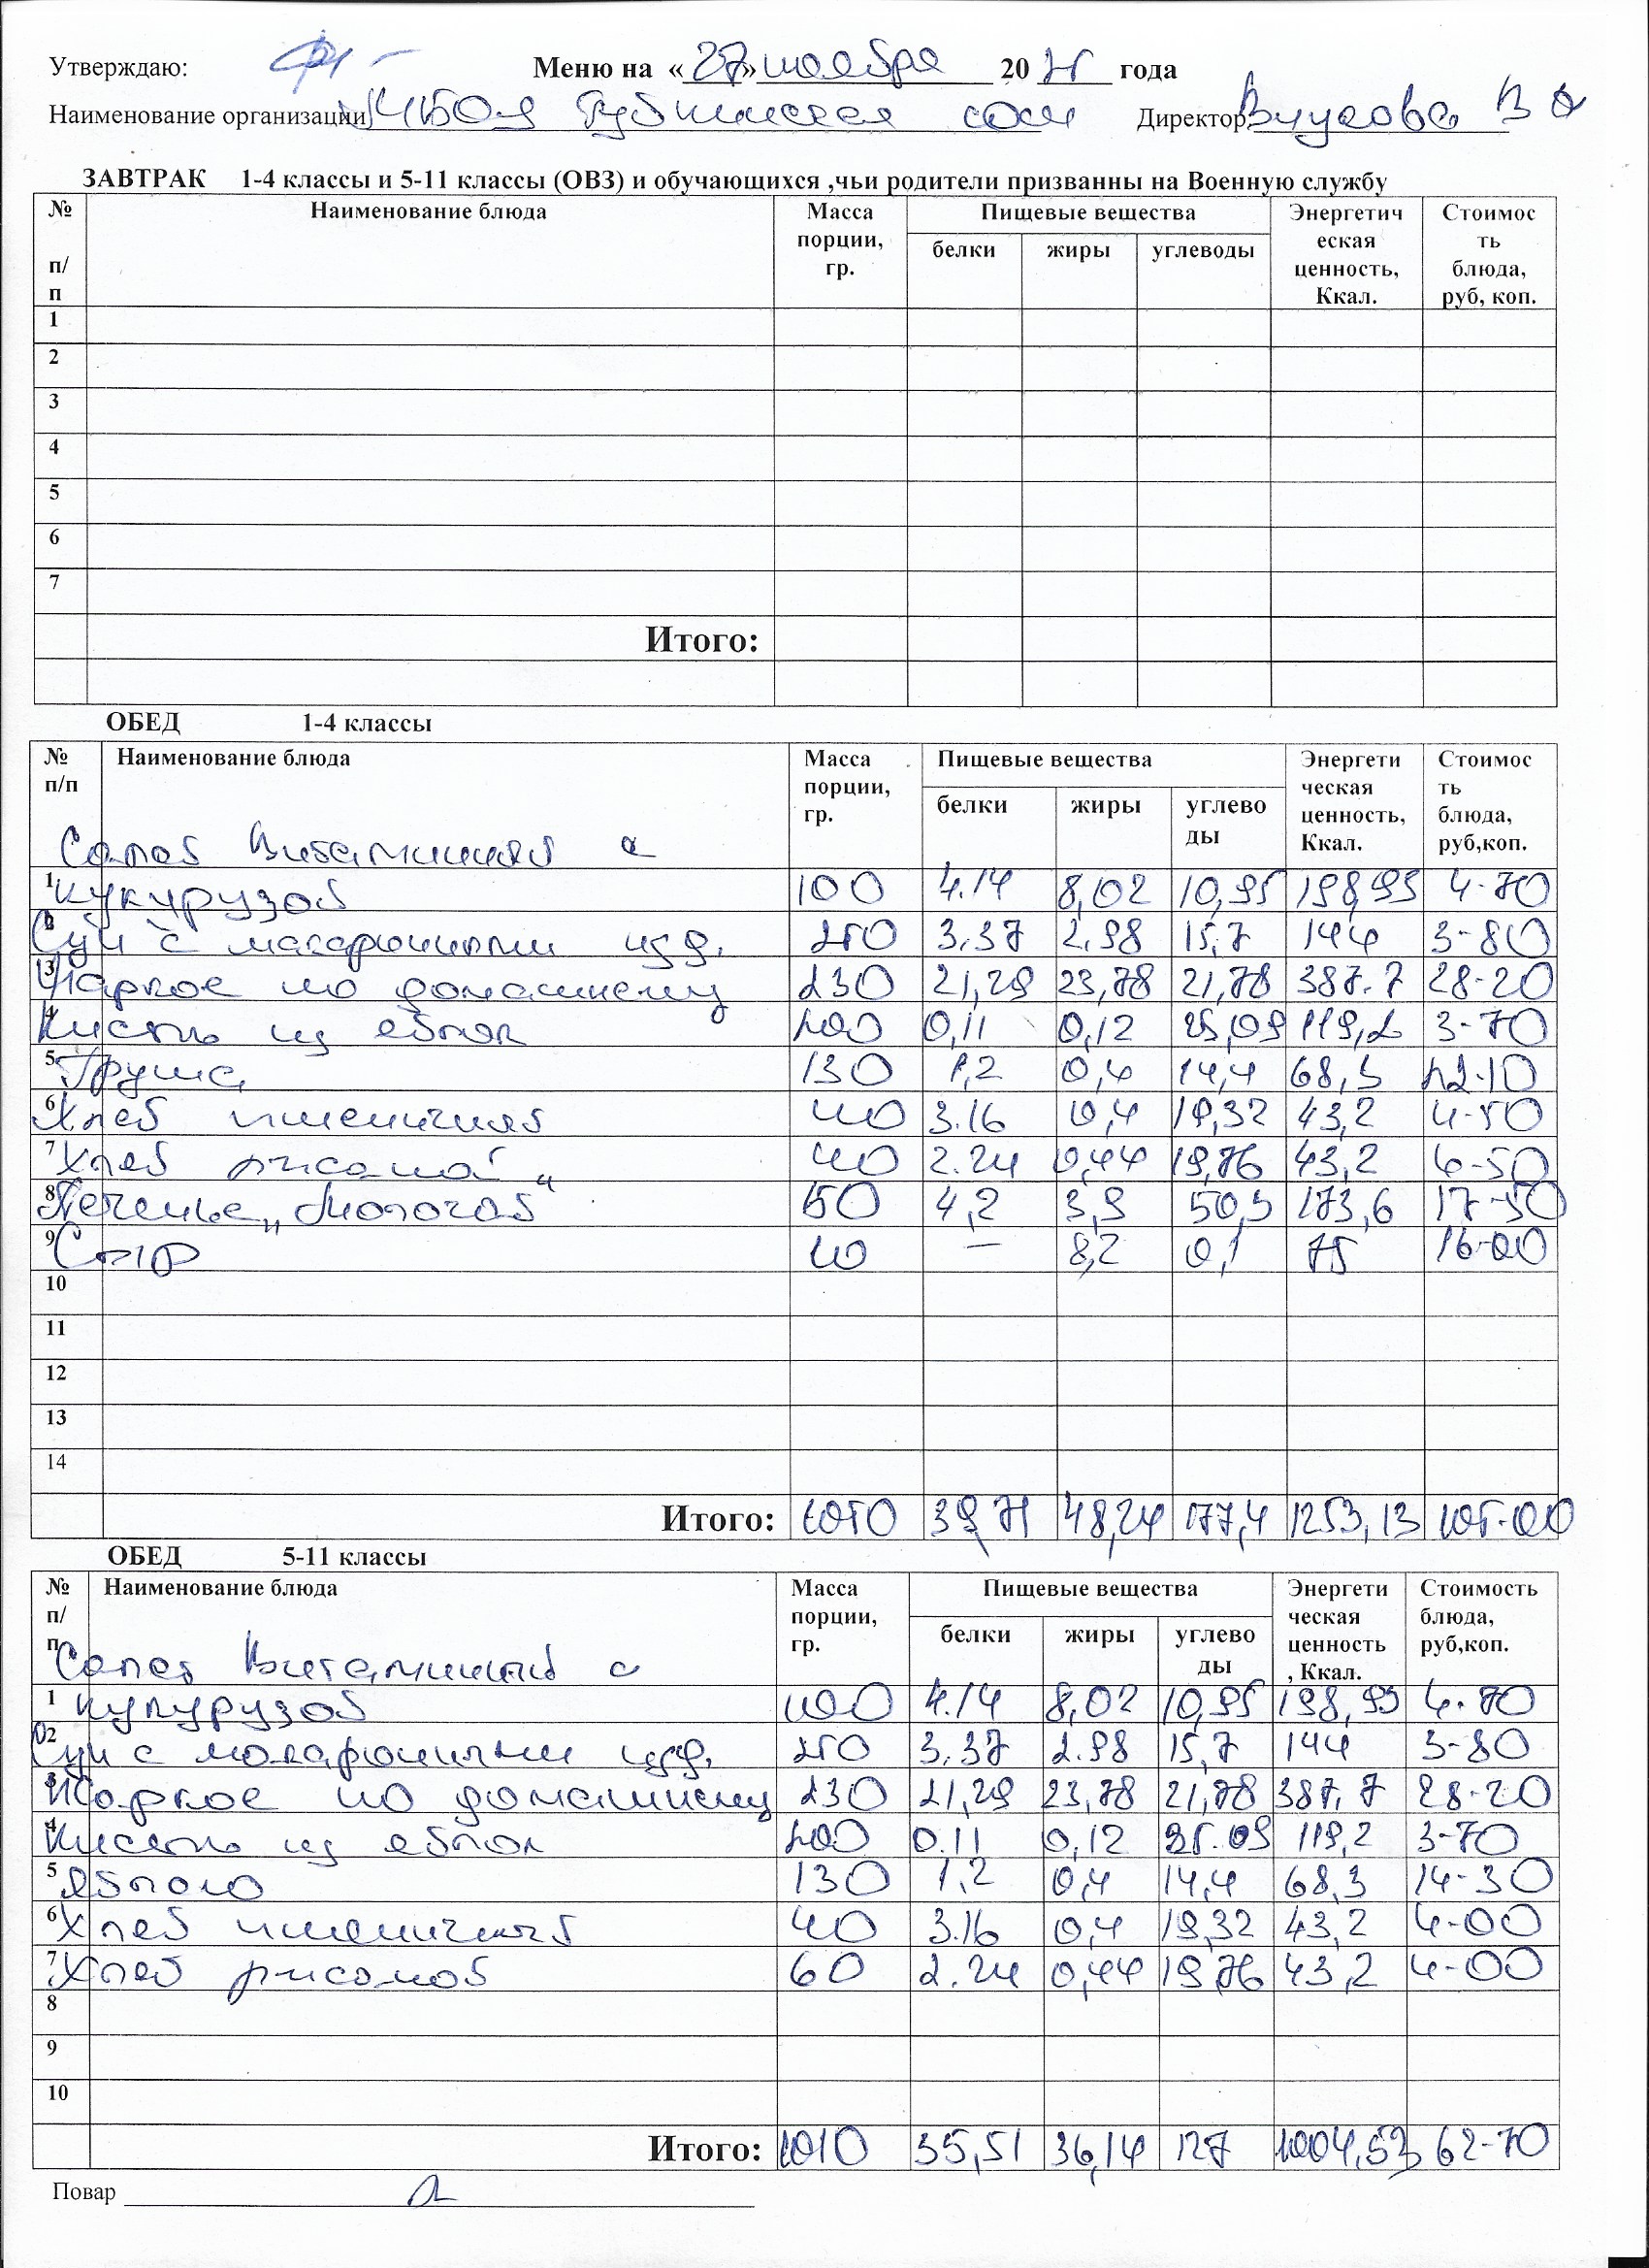 Утверждаю: Меню на «27» ноября 20 года
Наименование организации МБОУ Губкинская сош Директор: В
ЗАВТРАК 1-4 классы и 5-11 классы (ОВЗ) и обучающихся ,чьи родители призванны на Военную службу
№ п/п Наименование блюда Масса порции, гр. Пищевые вещества Энергетическая ценность, Ккал. Стоимость блюда, руб, коп.
белки жиры углеводы
1
2
3
4
5
6
7
Итого:
ОБЕД 1-4 классы
№ п/п Наименование блюда Масса порции, гр. Пищевые вещества Энергетическая ценность, Ккал. Стоимость блюда, руб,коп.
белки жиры углеводы
Салат Витаминный с
1 кукурузой 100 4.14 8,02 10,95 198,93 4-70
2 Суп с макаронными изд. 250 3,37 2,98 15,7 144 3-80
3 Жаркое по домашнему 230 21,29 23,78 21,78 387.7 28-20
4 Кисель из яблок 200 0,11 0,12 25,09 119,2 3-70
5 Груша 130 1,2 0,4 14,4 68,3 22-10
6 Хлеб пшеничный 40 3.16 0,4 19,32 43,2 4-50
7 Хлеб ржаной 40 2.24 0,44 19,76 43,2 4-50
8 Печенье „Молочай" 50 4,2 3,9 50,3 173,6 17-50
9 Сыр 10 — 8,2 0,1 75 16-00
10
11
12
13
14
Итого: 1050 39,71 48,24 177,4 1253,13 105-00
ОБЕД 5-11 классы
№ п/п Наименование блюда Масса порции, гр. Пищевые вещества Энергетическая ценность, Ккал. Стоимость блюда, руб,коп.
белки жиры углеводы
Салат Витаминный с
1 кукурузой 100 4.14 8,02 10,95 198,93 4-70
2 Суп с макаронными изд. 250 3,37 2.98 15,7 144 3-80
3 Жаркое по домашнему 230 21,29 23,78 21,78 387,7 28-20
4 Кисель из яблок 200 0.11 0,12 25.09 119,2 3-70
5 Яблоко 130 1,2 0,4 14,4 68,3 14-30
6 Хлеб пшеничный 40 3.16 0,4 19,32 43,2 4-00
7 Хлеб ржаной 60 2.24 0,44 19,76 43,2 4-00
8
9
10
Итого: 1010 35,51 36,14 127 1004,53 62-70
Повар